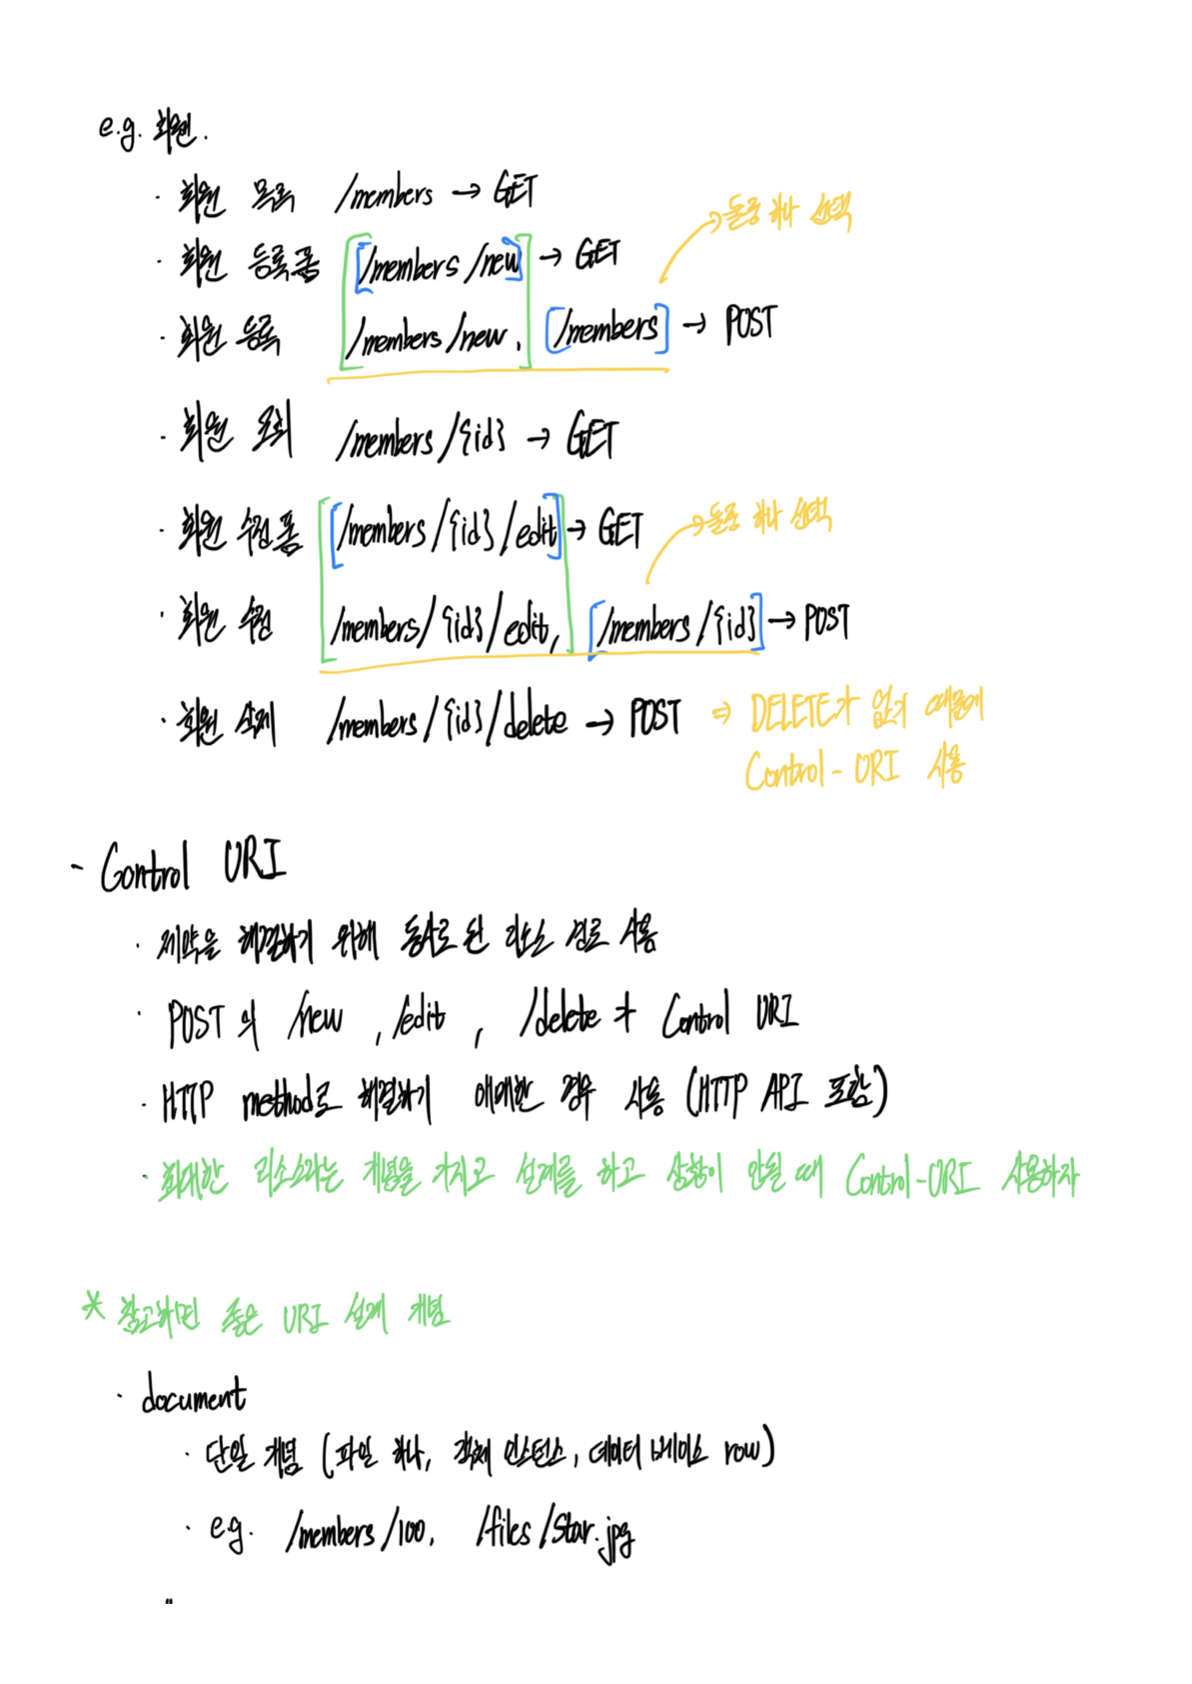 e.g. 회원.
· 회원 목록 /members → GET
→ 둘중 하나 선택
· 회원 등록폼 [/members/new] → GET
· 회원 등록 /members/new, [/members] → POST
· 회원 조회 /members/{id} → GET
· 회원 수정폼 [/members/{id}/edit] → GET
→ 둘중 하나 선택
· 회원 수정 /members/{id}/edit, [/members/{id}] → POST
· 회원 삭제 /members/{id}/delete → POST ⇒ DELETE가 없기 때문에
Control - URI 사용
- Control URI
· 제약을 해결하기 위해 동사로 된 리소스 경로 사용
· POST의 /new , /edit , /delete가 Control URI
· HTTP method로 해결하기 애매한 경우 사용 (HTTP API 포함)
· 최대한 리소스라는 개념을 가지고 설계를 하고 상황이 안될때 Control-URI 사용하자
* 참고하면 좋은 URI 설계 개념
· document
· 단일 개념 (파일 하나, 객체 인스턴스, 데이터베이스 row)
· e.g. /members/100, /files/Star.jpg